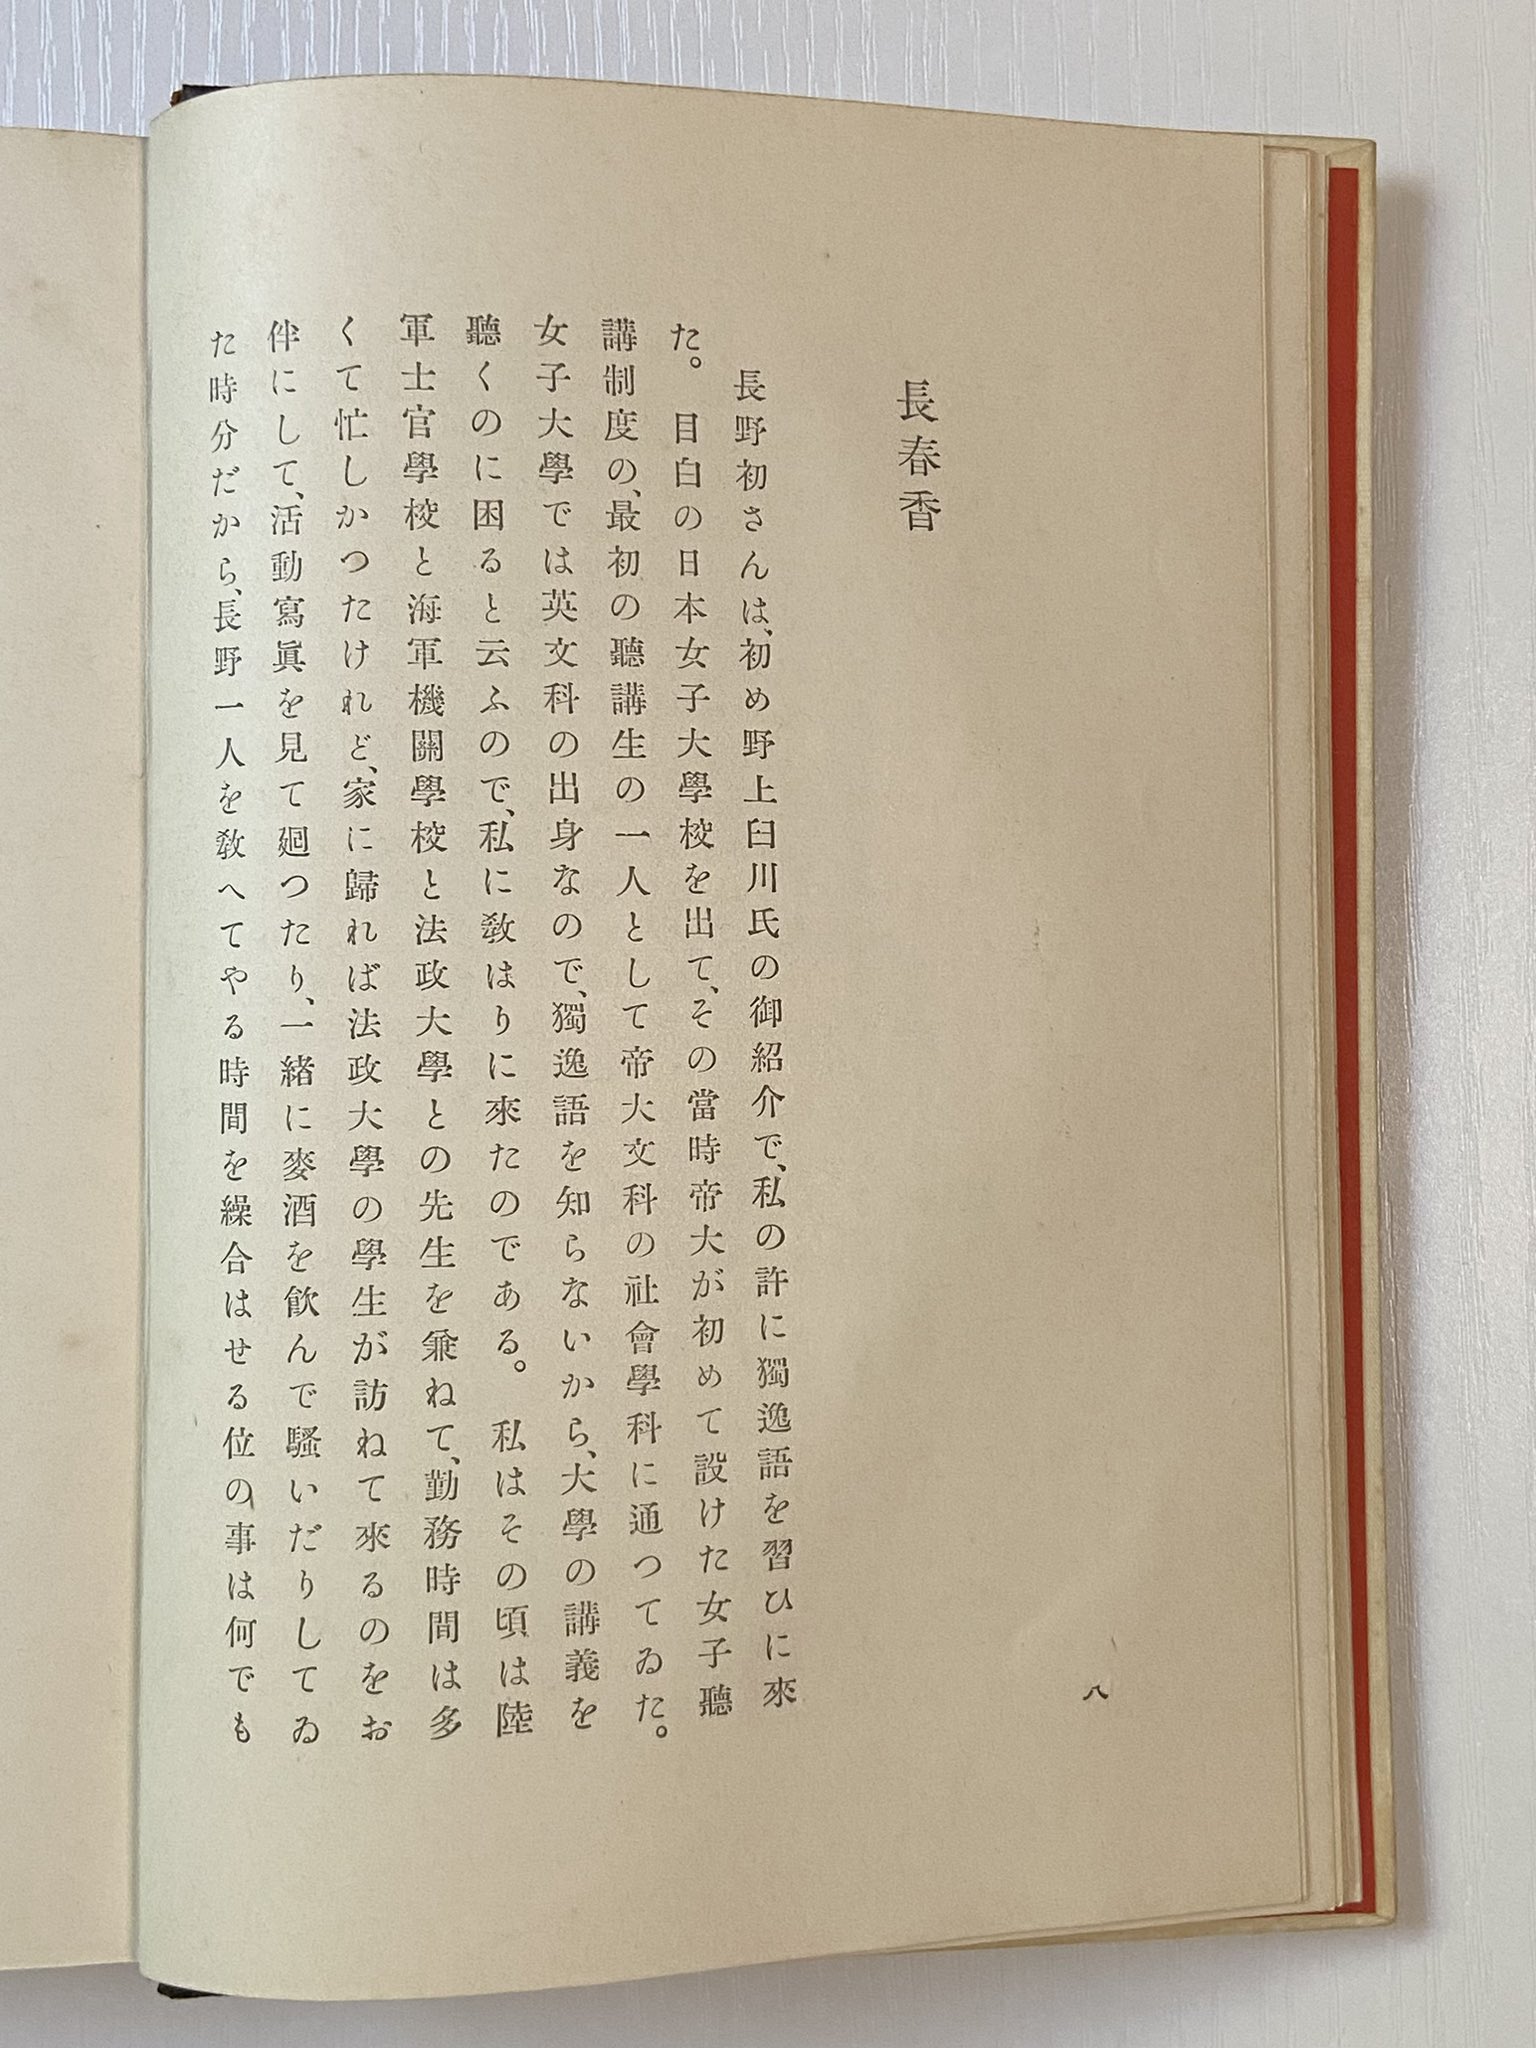 長春香
長野初さんは、初め野上臼川氏の御紹介で、私の許に獨逸語を習ひに來
た。目白の日本女子大學校を出て、その當時帝大が初めて設けた女子聽
講制度の、最初の聽講生の一人として帝大文科の社會學科に通つてゐた。
女子大學では英文科の出身なので、獨逸語を知らないから、大學の講義を
聽くのに困ると云ふので、私に敎はりに來たのである。私はその頃は陸
軍士官學校と海軍機關學校と法政大學との先生を兼ねて、勤務時間は多
くて忙しかつたけれど、家に歸れば法政大學の學生が訪ねて來るのをお
伴にして、活動寫眞を見て廻つたり、一緒に麥酒を飮んで騷いだりしてゐ
た時分だから、長野一人を敎へてやる時間を繰合はせる位の事は何でも
八